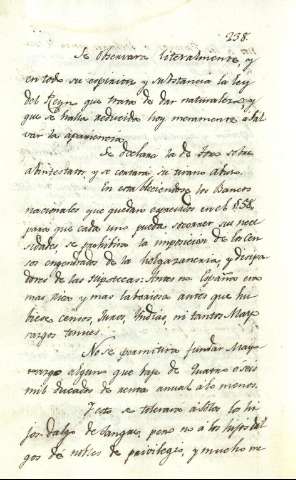 238.
Se observara literalmente, y
en todo su espiritu y substancia la ley
del Reyno que trata de dar naturaleza, y
que se halla reducida hoy meramente a sal
var la apariencia.
Se declare la de Toro sobre
abintestatos, y se cortara su vano abuso.
En estableciendose los Bancos
nacionales que quedan expresados en el § 58,
para que cada uno pueda socorrer sus nece
sidades se prohibira la imposicion de los Cen
sos engendrados de la holgazaneria, y disipa
dores de las Hipotecas: Antes la España era
mas rica y mas laboriosa antes que hu
biese censos, Juros, Yndias, ni tantos May
razgos tenues.
No se permitira fundar Mayo
razgo alguno que baje de quatro o seis
mil ducados de renta anual a lo menos.
Y esto se tolerara a solos los hi
josdalgo de sangre, pero no a los hijosdal
gos de notorios de privilegio, y mucho me